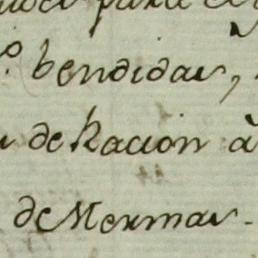 para
bendidas,
de Racion à
de Mermas.